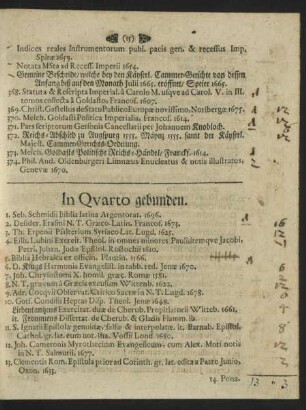 (15)
Indices reales Instrumentorum publ. pacis gen. & recessus Imp.
Spiræ 1673.
Notata MSta ad Recess. Imperii 1654.
Gemeine Bescheide/ welche bey den Käyserl. Cammer-Gericht von dessen
Anfang biß auf den Monath Julii 1661. eröffnet/ Speier 1665.
368. Statuta & Rescripta Imperial. à Carolo M. usque ad Carol. V. in III.
tomos collecta à Goldasto, Francof. 1607.
369. Christ. Gastelius de Statu Publico Europæ novissimo. Noribergæ 1675.
370. Melch. Goldasti Politica Imperialia, Francof. 1614.
371. Pars scriptorum Gersonis Cancellarii per Johannem Knobloch.
372. Reichs-Abschied zu Augspurg 1555. Meyntz 1555. samt der Käyserl.
Majest. Cammer-Gerichts-Ordnung.
373. Melch. Goldasts Politische Reichs-Händel/ Franckf. 1614.
374. Phil. And. Oldenburgeri Limnæus Enucleatus & notis illustratus,
Genevæ 1670.
In Qvarto gebunden.
1. Seb. Schmidii Biblia latina Argentorat. 1696.
2. Desider. Erasmi N. T. Græco-Latin. Francof. 1673.
3. Th. Erpenii Psalterium Syriaco-Lat. Lugd. 1625.
4. Eilh. Lubini Exercit. Theol. in omnes minores Pauli itemque Jacobi,
Petri, Johan. Judæ Epistol. Rostochii 1610.
5. Biblia Hebraica ex officin. Plantin. 1566.
6. D. Kluge Harmonia Evangelist. in tabb. red. Jenæ 1670.
7. Joh. Chrysostomi X. homil. græc. Romæ 1581.
8. N. T. græcum à Græcis excusum Wittenb. 1622.
9. Adr. Cocquii Observat. Critico Sacræ in N. T. Lugd. 1678.
10. Gotf. Cundisii Heptas Disp. Theol. Jenæ 1648.
Ejusd. Exercitat. duæ de Cherub. Propitiatorii Witteb. 1661.
it. Dissert. de Cherub. & Gladii Flamm. ib.
11. S. Ignatii Epistolæ genuinæ, falsæ & interpolatæ. it. Barnab. Epistol.
Cathol. gr. lat. cum not. Isa. Vossii Lond. 1680.
12. Joh. Cameronis Myrothecium Evangelicum, cum Alex. Mori notis
in N. T. Salmurii. 1677.
13. Clementis Rom. Epistola prior ad Corinth. gr. lat. edita à Patric. Junio,
Oxon. 1633.
14. Pona-